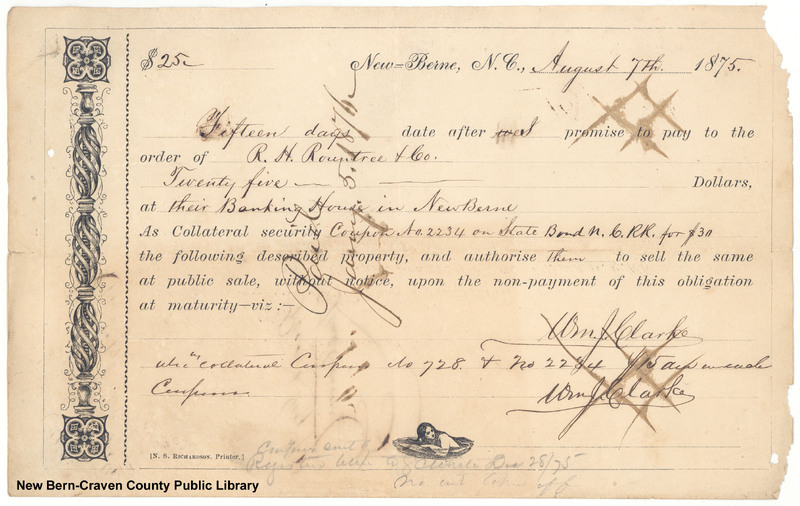 $25 New=Berne, N.C., August 7th. 1875.
Fifteen days date after I promise to pay to the
order of R. H. Rountree & Co.
Twenty five Dollars,
at their Banking House in NewBerne
As Collateral security Coupon No. 2234 on State Bond N.C.RR. for $30
the following described property, and authorise them to sell the same
at public sale, without notice, upon the non-payment of this obligation
at maturity—viz:—
Wm J. Clarke
collateral Coupon No 728. & No 2234 $15 on each
Coupon
Wm J. Clarke
Paid
Jany. 5. 1876
[N. S. Richardson, Printer.]
Coupons
Dec 28/75
No
New Bern-Craven County Public Library